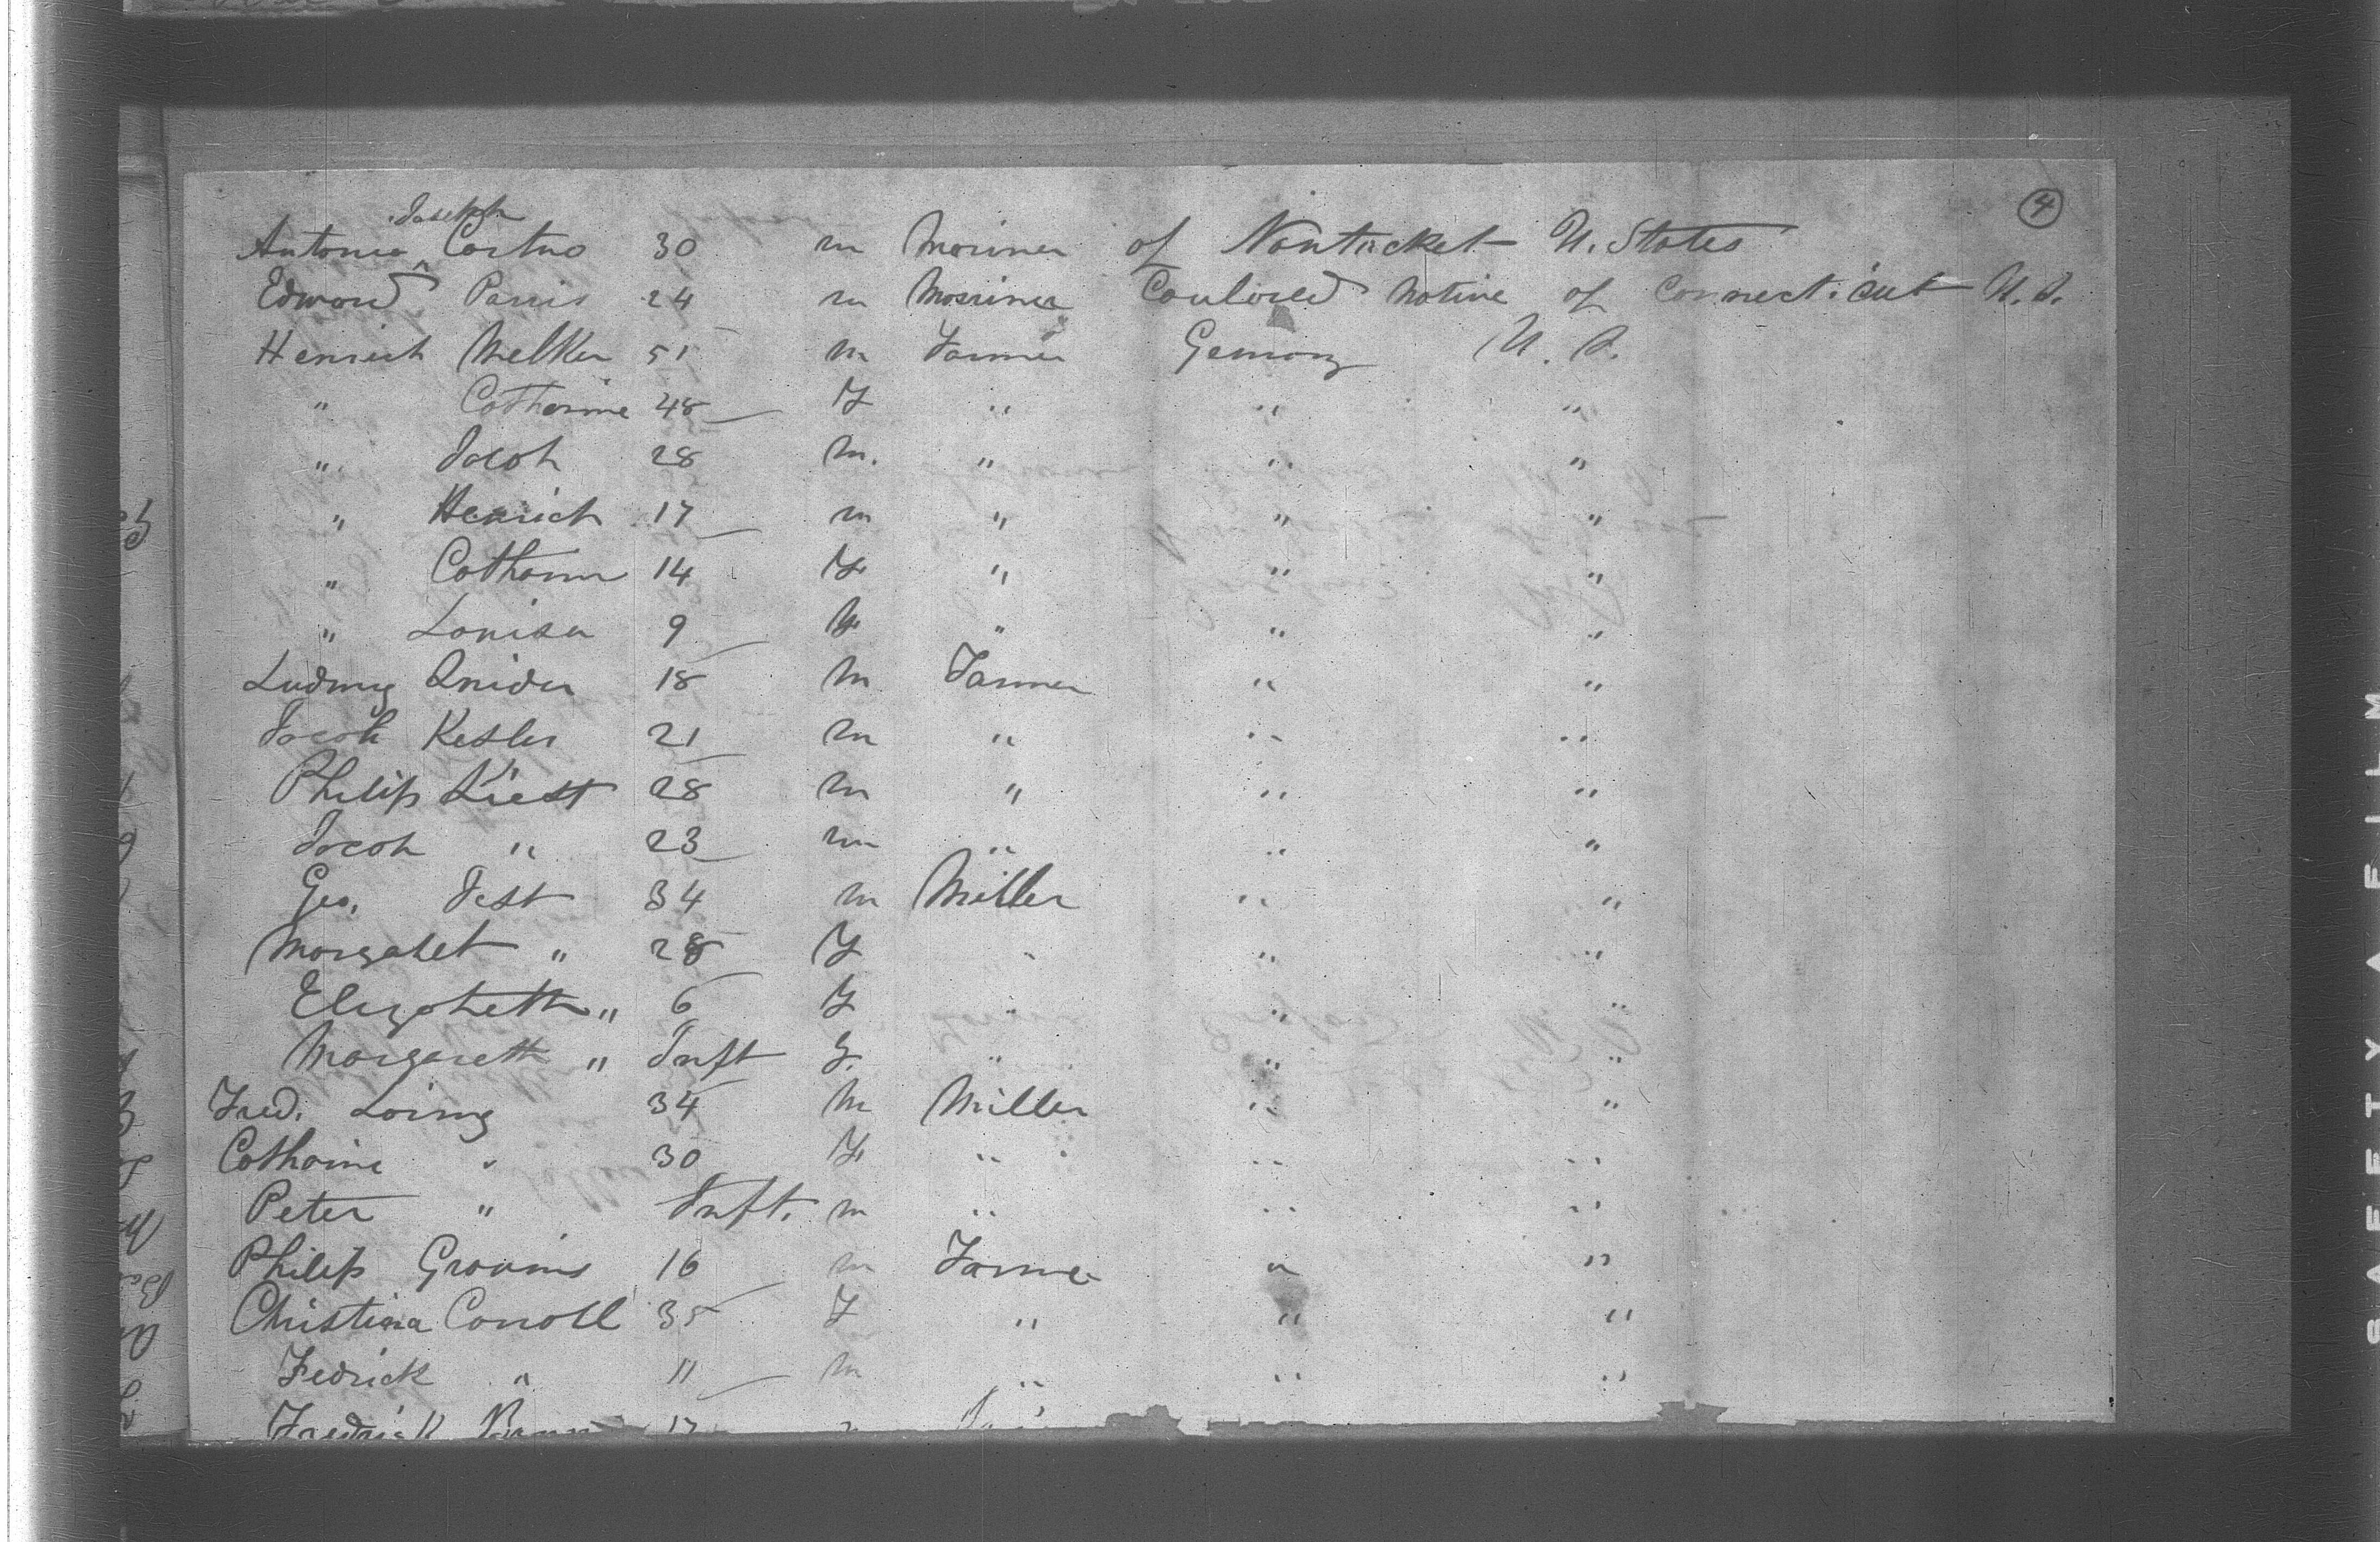 4
Joseph
Antonio ^ Cortus 30 m Mariner of Nantucket U. States
Edward Parris 24 m Marriner Coulored Native of Connecticut U.S.
Henrich Melker 51 m Farmer Gemany U. S.
" Catharine 48 F " " "
" Jacob 28 m. " " "
" Henrich 17 m " " "
" Catharin 14 F " " "
" Louisa 9 F " " "
Ludwig Snider 18 m Farmer " "
Jacob Kesler 21 m " " "
Philip Kiest 28 m " " "
Jacob " 23 m " " "
Geo. Jest 34 m Miller " "
Margaret " 28 F " " "
Elizabeth " 6 F " " "
Margarett " Inft F. " " "
Fred. Loring 34 m Miller " "
Catharine " 30 F " " "
Peter " Inft. m " " "
Philip 16 m Farmer " "
Christina Conoll 35 F " " "
Fedrick " 11 m " " "
Fredrick 17 m
SAFETY FILM